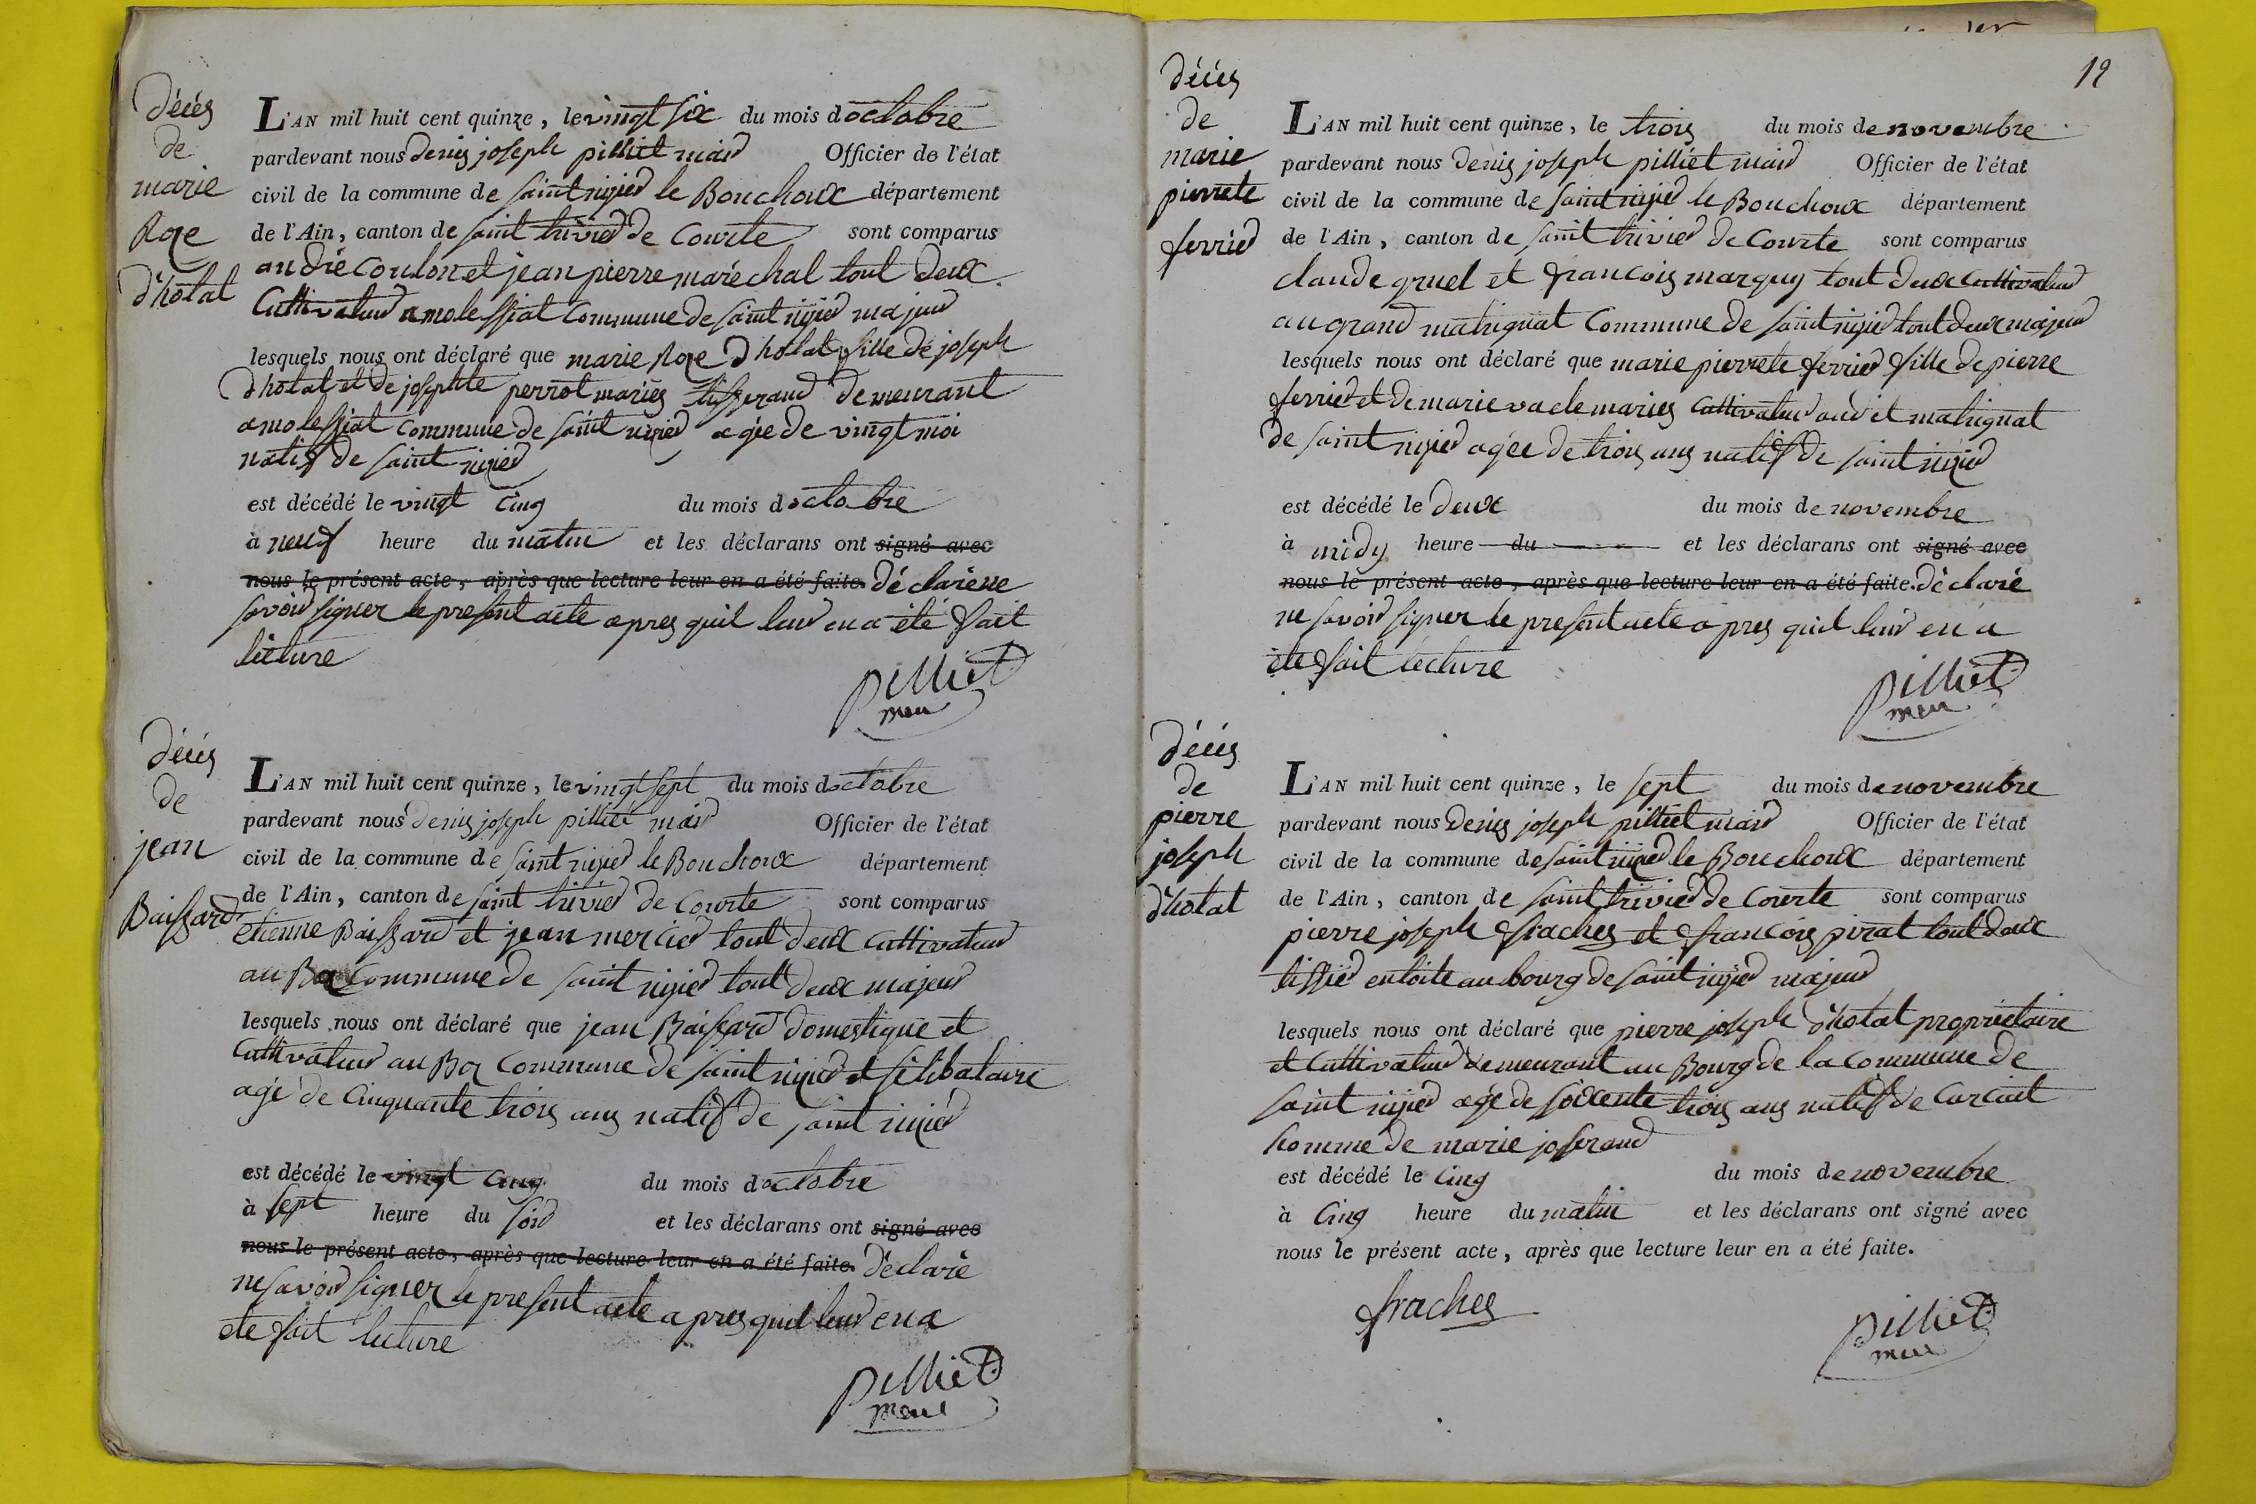 décés
de
marie
Roze
d'hotat
L'AN mil huit cent quinze, le vingt six du mois doctobre
pardevant nous denis joseph pilliet maire Officier de l'état
civil de la commune de saint nizier le Bouchoux département
de l'Ain, canton de saint trivier de Courte sont comparus
andré Coulon et jean pierre maréchal tout deux
Cultivateur a molessiat Commune de saint nizier majeur
lesquels nous ont déclaré que marie Roze d'hotat fille de joseph
d'hotat et de josephte perrot mariés tisserand demeurant
a molessiat commune de saint nizier agée de vingt moi
natif de saint nizier
est décédé le vingt cinq du mois doctobre
à neuf heure du matin et les déclarans ont signé avec
nous le présent acte, après que lecture leur en a été faite. déclaré ne
savoir signer le present acte apres quil leur en a été fait
lecture
Pilliet
maire
décés
de
jean
Baissard
L'AN mil huit cent quinze, le vingt sept du mois doctobre
pardevant nous denis joseph pilliet maire Officier de l'état
civil de la commune de saint nizier le Bouchoux département
de l'Ain, canton de saint trivier de Courte sont comparus
etienne Baissard et jean mercier tout deux Cultivateur
au Boz Commune de saint nizier tout deux majeur
lesquels nous ont déclaré que jean Baissard domestique et
Cultivateur au Boz Commune de saint nizier et sélibataire
agé de Cinquante trois ans natif de saint nizier
est décédé le vingt cinq du mois doctobre
à sept heure du soir et les déclarans ont signé avec
nous le présent acte, après que lecture leur en a été faite. déclaré
ne savoir signer le present acte apres quil leur en a
ete fait lecture
Pilliet
maire
12
décés
de
marie
pierrete
ferrier
L'AN mil huit cent quinze, le trois du mois de novembre
pardevant nous denis joseph pilliet maire Officier de l'état
civil de la commune de saint nizier le Bouchoux département
de l'Ain, canton de saint trivier de Courte sont comparus
claude gruel et francois marguy tout deux Cultivateur
au grand matignat Commune de saint nizier tout deux majeur
lesquels nous ont déclaré que marie pierrete ferrier fille de pierre
ferrier et de marie vacle mariés Cultivateur audit matignat
de saint nizier agée de trois ans natif de saint nizier
est décédé le deux du mois de novembre
à midy heure du et les déclarans ont signé avec
nous le présent acte, après que lecture leur en a été faite. déclaré
ne savoir signer le present acte apres quil leur en a
ete fait lecture
Pilliet
maire
décés
de
pierre
joseph
d'hotat
L'AN mil huit cent quinze, le sept du mois de novembre
pardevant nous denis joseph pilliet maire Officier de l'état
civil de la commune de saint nizier le Bouchoux département
de l'Ain, canton de saint trivier de Courte sont comparus
pierre joseph fraches et francois pirat tout deux
tissier entoite au bourg de saint nizier majeur
lesquels nous ont déclaré que pierre joseph d'hotat propriétaire
et Cultivateur demeurant au Bourg de la commune de
saint nizier agé de soixente trois ans natif de Curciat
homme de marie josserand
est décédé le cinq du mois de novembre
à Cinq heure du matin et les déclarans ont signé avec
nous le présent acte, après que lecture leur en a été faite.
fraches
Pilliet
maire